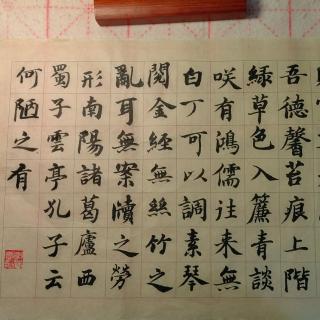 吾德馨苔痕上階
綠草色入簾青談
咲有鴻儒往來無
白丁可以調素琴
閱金經無絲竹之
亂耳無案牘之勞
形南陽諸葛廬西
蜀子雲亭孔子云
何陋之有